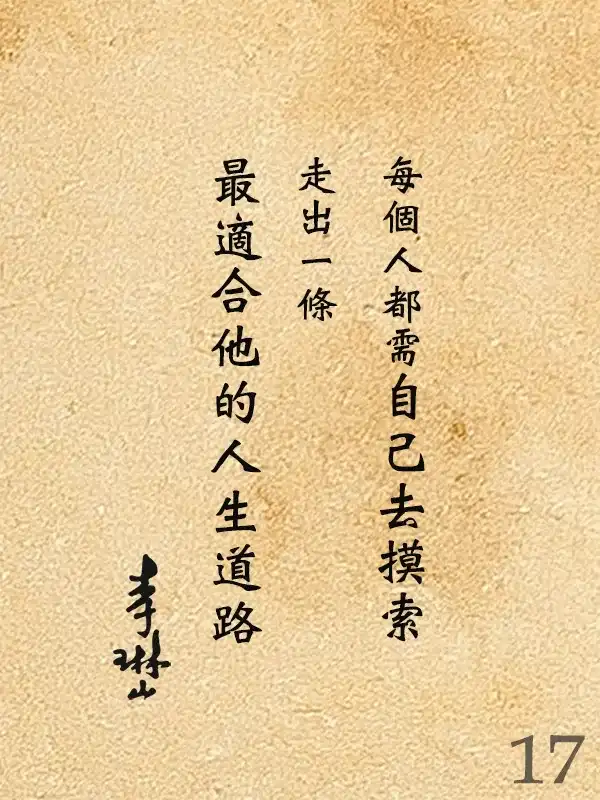 每個人都需自己去摸索
走出一條
最適合他的人生道路
李琳山
17